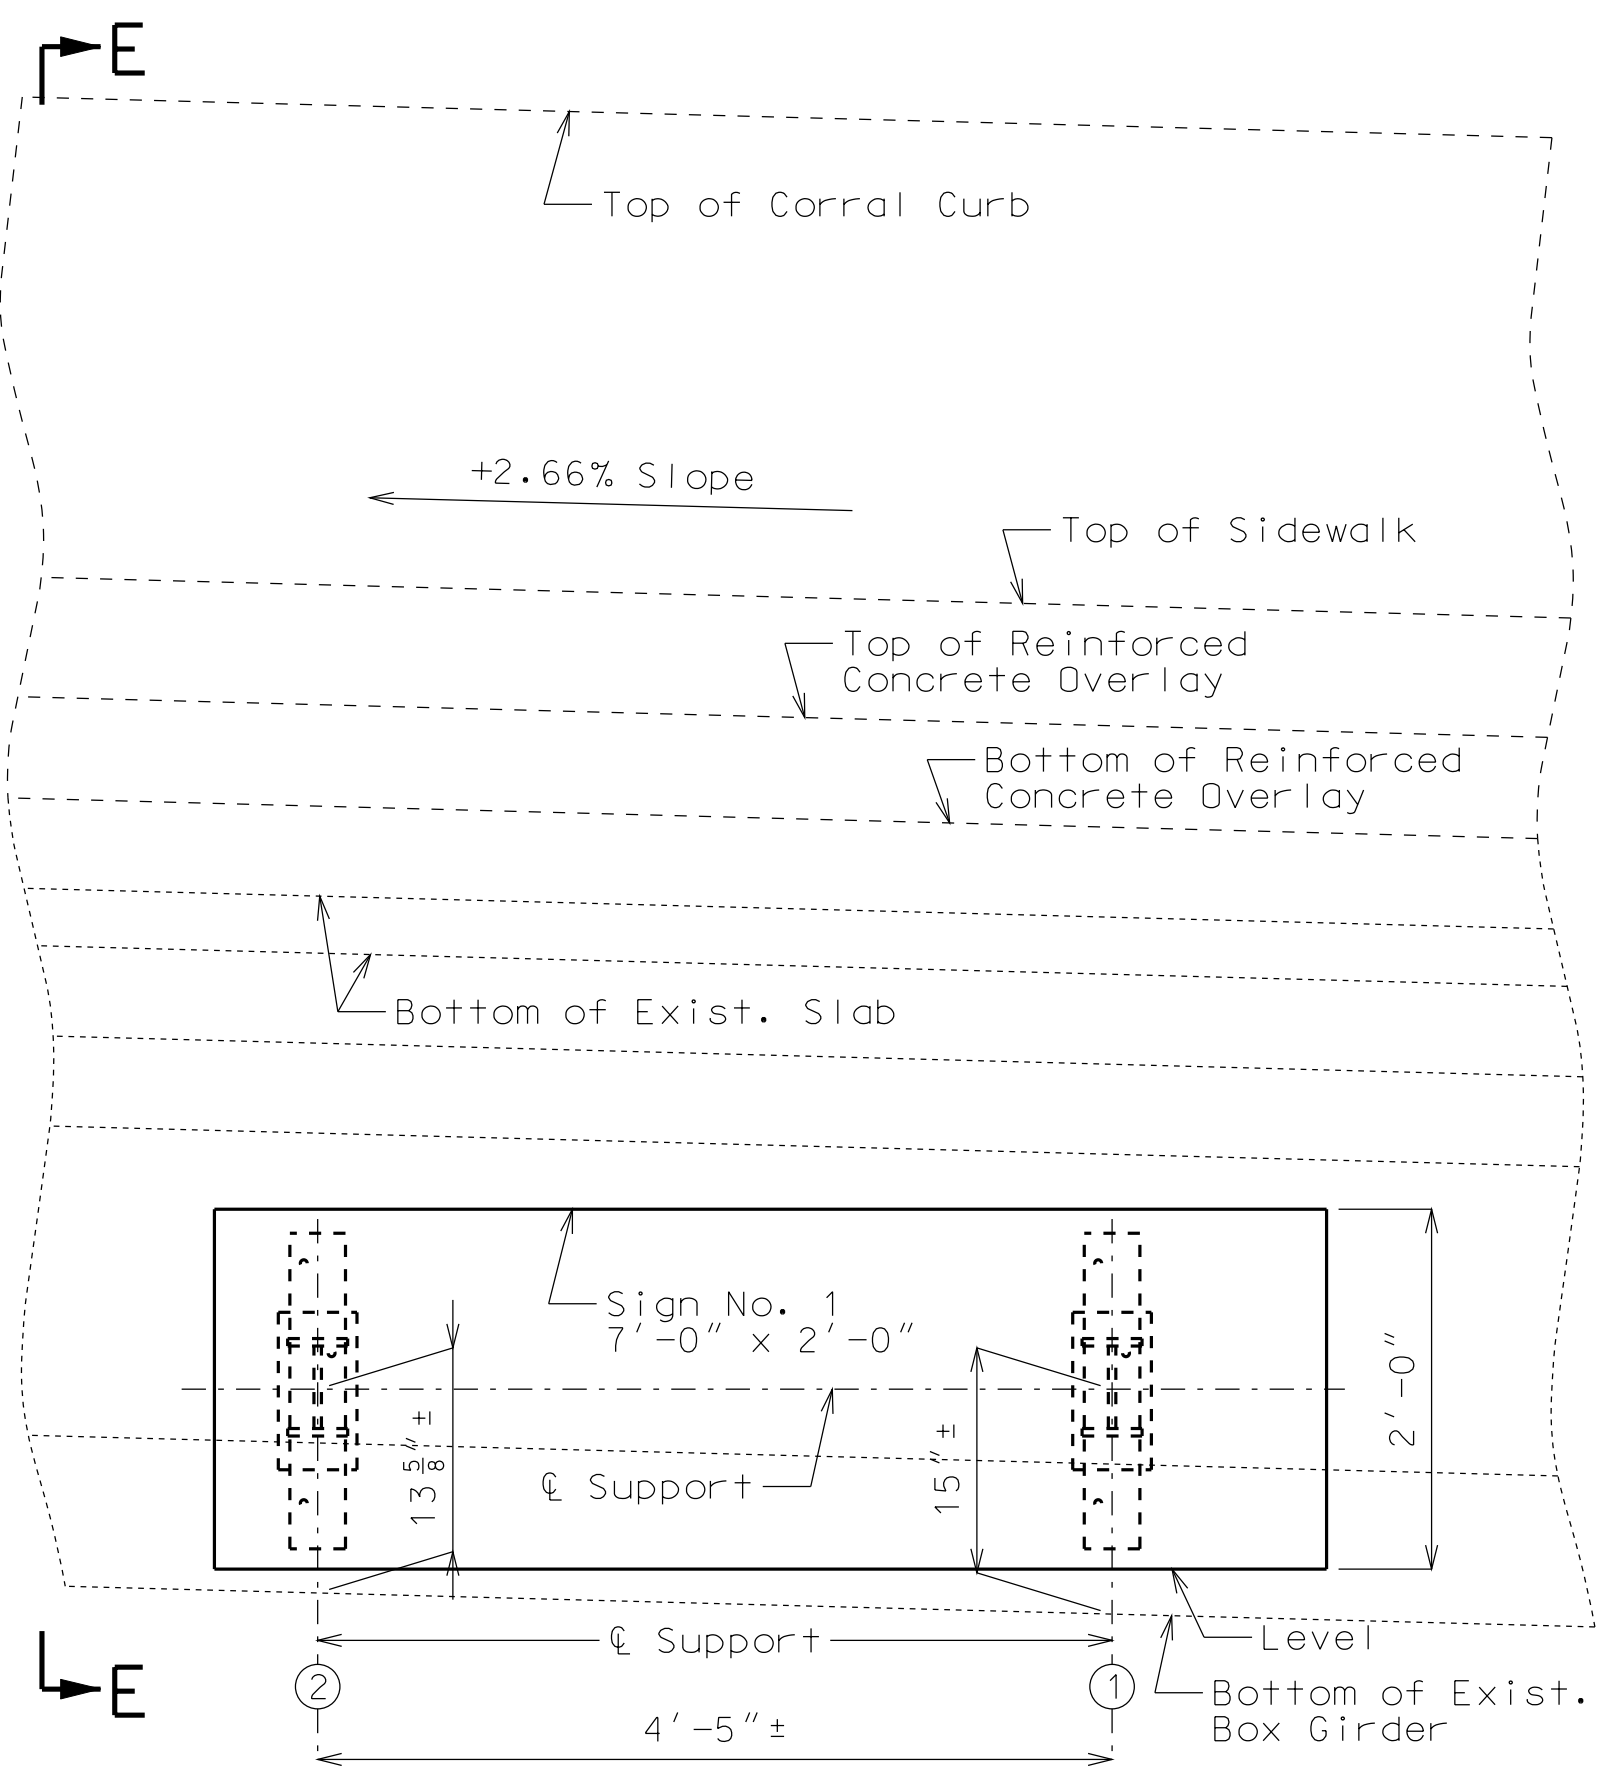 E
Top of Corral Curb
+2.66% Slope
Top of Sidewalk
Top of Reinforced
Concrete Overlay
Bottom of Reinforced
Concrete Overlay
Bottom of Exist. Slab
Sign No. 1
7'-0" x 2'-0"
2'-0"
13 5/8" ±
15" ±
℄ Support
℄ Support
Level
E
2
1
Bottom of Exist.
Box Girder
4'-5"±